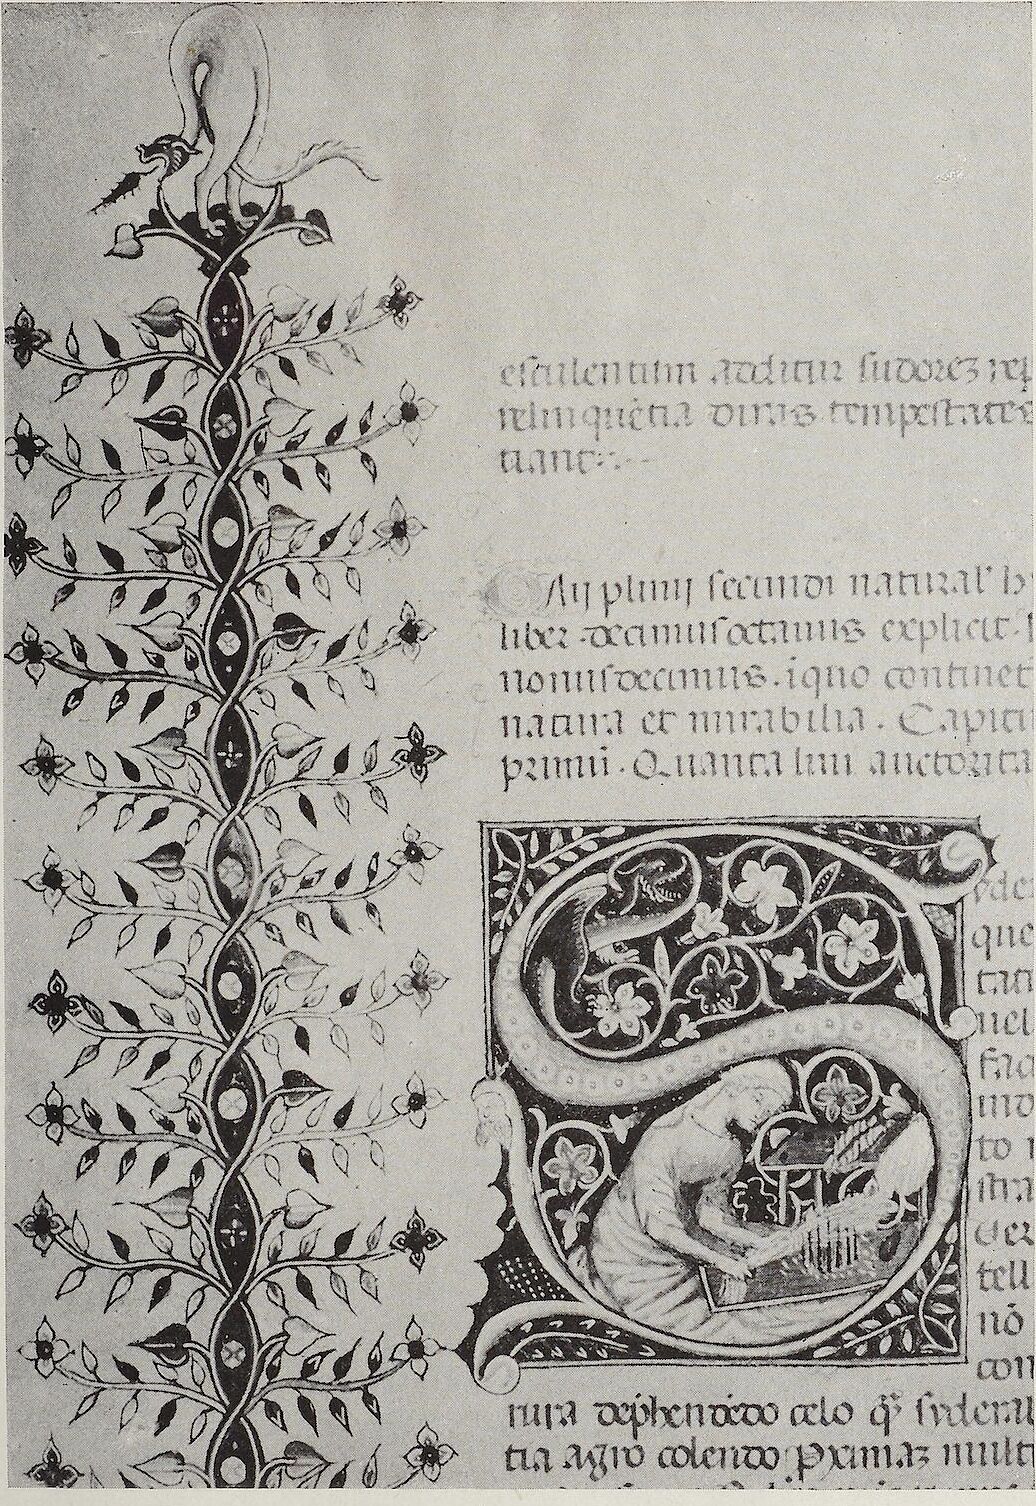 esculentum additur sudorēʒ reꝑ
relinquētia diras tempestates
tiant
Aij plinij secundi natural' h
liber decimusoctauus explicit.
nonusdecimus. iquo continet
natura et mirabilia. Capitu
primū. Quanta lini auctorita
S yde
que
tati
uel
faci
mo
to i
stra
ver
tell
nō
con
rura dep̄hendēdo celo qͣ syderal
tia agro colendo ꝓximaʒ multi